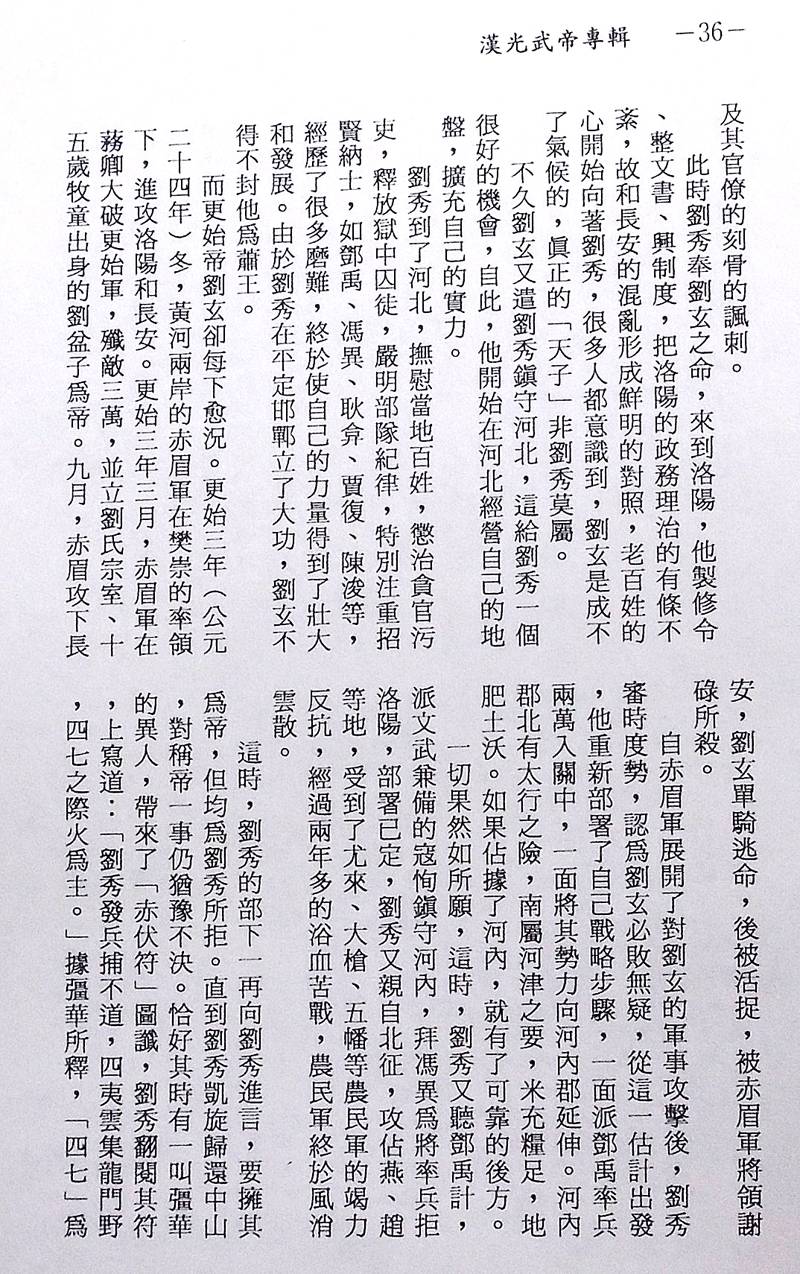 漢光武帝專輯
－36－
及其官僚的刻骨的諷刺。
此時劉秀奉劉玄之命，來到洛陽，他製修令
、整文書、興制度，把洛陽的政務理治的有條不
紊，故和長安的混亂形成鮮明的對照，老百姓的
心開始向著劉秀，很多人都意識到，劉玄是成不
了氣候的，眞正的「天子」非劉秀莫屬。
不久劉玄又遣劉秀鎮守河北，這給劉秀一個
很好的機會，自此，他開始在河北經營自己的地
盤，擴充自己的實力。
劉秀到了河北，撫慰當地百姓，懲治貪官污
吏，釋放獄中囚徒，嚴明部隊紀律，特別注重招
賢納士，如鄧禹、馮異、耿弇、賈復、陳浚等，
經歷了很多磨難，終於使自己的力量得到了壯大
和發展。由於劉秀在平定邯鄲立了大功，劉玄不
得不封他爲蕭王。
而更始帝劉玄卻每下愈況。更始三年（公元
二十四年）冬，黃河兩岸的赤眉軍在樊崇的率領
下，進攻洛陽和長安。更始三年三月，赤眉軍在
蓩鄉大破更始軍，殲敵三萬，並立劉氏宗室、十
五歲牧童出身的劉盆子爲帝。九月，赤眉攻下長
安，劉玄單騎逃命，後被活捉，被赤眉軍將領謝
碌所殺。
自赤眉軍展開了對劉玄的軍事攻擊後，劉秀
審時度勢，認爲劉玄必敗無疑，從這一估計出發
，他重新部署了自己戰略步驟，一面派鄧禹率兵
兩萬入關中，一面將其勢力向河內郡延伸。河內
郡北有太行之險，南屬河津之要，米充糧足，地
肥土沃。如果佔據了河內，就有了可靠的後方。
一切果然如所願，這時，劉秀又聽鄧禹計，
派文武兼備的寇恂鎮守河內，拜馮異爲將率兵拒
洛陽，部署已定，劉秀又親自北征，攻佔燕、趙
等地，受到了尤來、大槍、五幡等農民軍的竭力
反抗，經過兩年多的浴血苦戰，農民軍終於風消
雲散。
這時，劉秀的部下一再向劉秀進言，要擁其
爲帝，但均爲劉秀所拒。直到劉秀凱旋歸還中山
，對稱帝一事仍猶豫不決。恰好其時有一叫彊華
的異人，帶來了「赤伏符」圖讖，劉秀翻閱其符
，上寫道：「劉秀發兵捕不道，四夷雲集龍鬥野
，四七之際火爲主。」據彊華所釋，「四七」爲